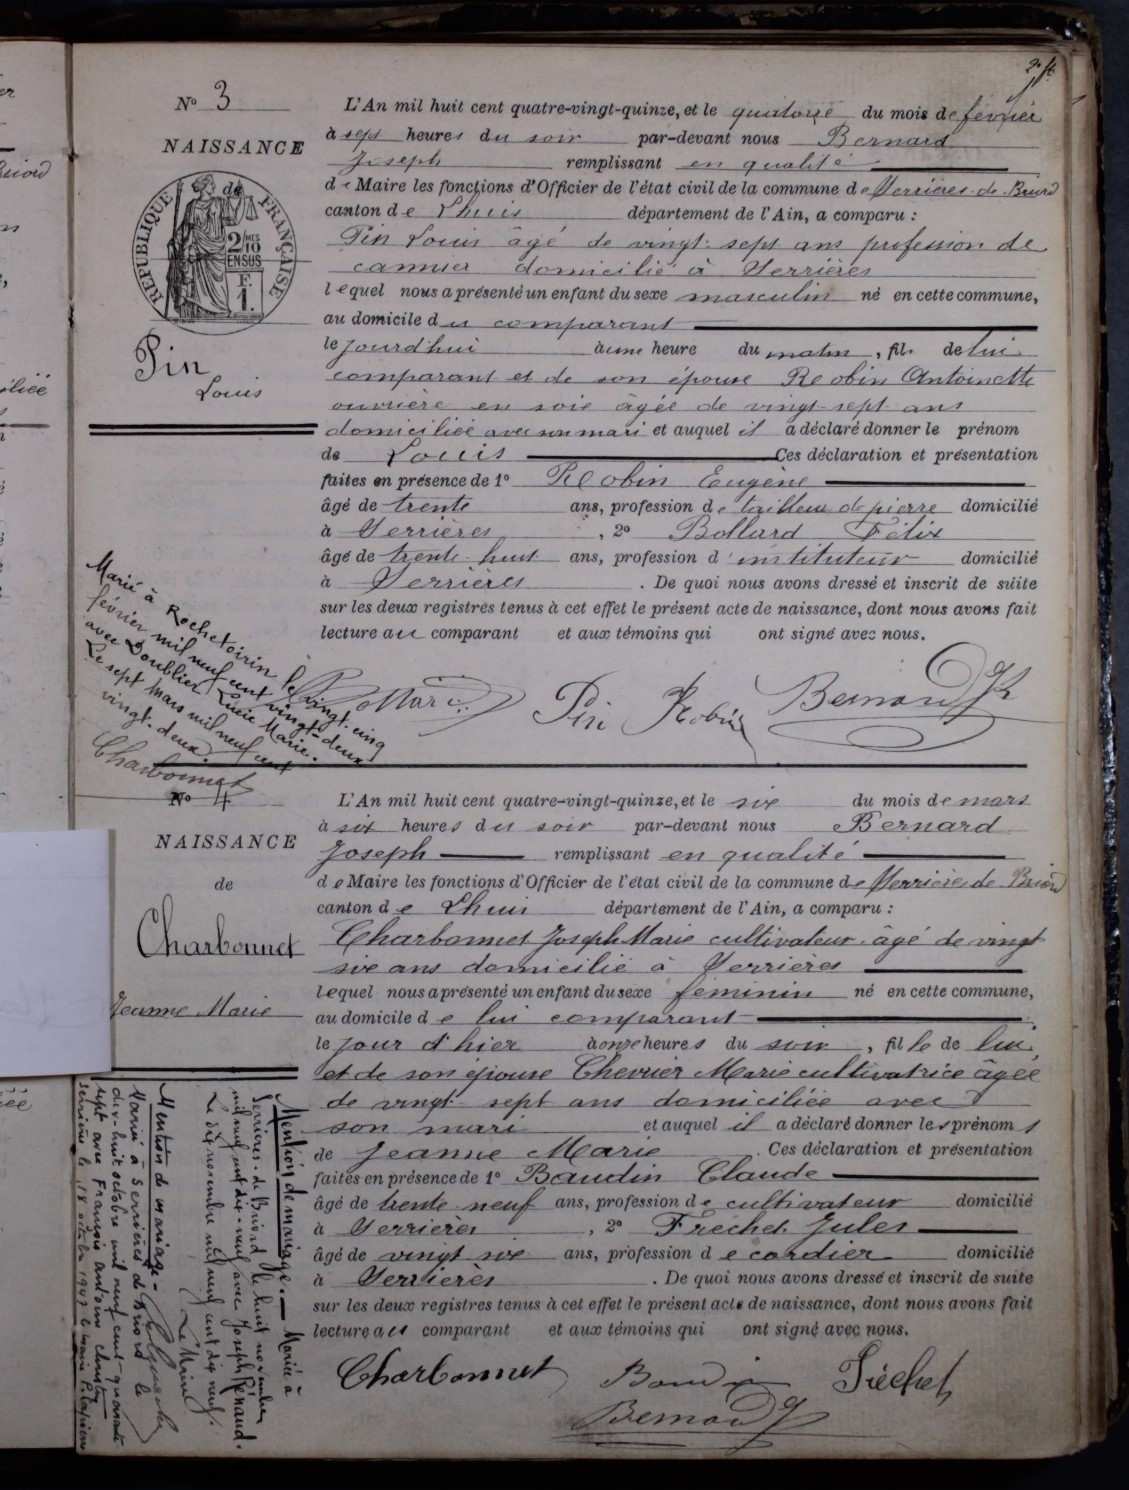 2e ft
No 3
NAISSANCE
de
RÉPUBLIQUE FRANÇAISE
2/10
MES
EN SUS
F.
1.
Pin
Louis
L'An mil huit cent quatre-vingt-quinze, et le quatorze du mois de février
à sept heures du soir par-devant nous Bernard
Joseph remplissant en qualité
de Maire les fonctions d'Officier de l'état civil de la commune de Serrières-de-Briord
canton de Lhuis département de l'Ain, a comparu :
Pin Louis âgé de vingt-sept ans profession de
cannier domicilié à Serrières
lequel nous a présenté un enfant du sexe masculin né en cette commune,
au domicile du comparant
le jourd'hui à une heure du matin, fils de lui
comparant et de son épouse Robin Antoinette
ouvrière en soie âgée de vingt-sept ans
domiciliée avec son mari et auquel il a déclaré donner le prénom
de Louis Ces déclaration et présentation
faites en présence de 1o Robin Eugène
âgé de trente ans, profession de tailleur de pierre domicilié
à Serrières, 2o Bollard Félix
âgé de trente-huit ans, profession d'instituteur domicilié
à Serrières. De quoi nous avons dressé et inscrit de suite
sur les deux registres tenus à cet effet le présent acte de naissance, dont nous avons fait
lecture au comparant et aux témoins qui ont signé avec nous.
Marié à Rochetoirin le vingt-cinq
février mil neuf cent vingt-deux
avec Doublier Lucie Marie.
Le sept Mars mil neuf cent
vingt-deux.
Charbonnet
Pin Robin Bernard J
No 4
NAISSANCE
de
Charbonnet
Jeanne Marie
L'An mil huit cent quatre-vingt-quinze, et le six du mois de mars
à six heures du soir par-devant nous Bernard
Joseph remplissant en qualité
de Maire les fonctions d'Officier de l'état civil de la commune de Serrières de Briord
canton de Lhuis département de l'Ain, a comparu :
Charbonnet Joseph Marie cultivateur âgé de vingt
six ans domicilié à Serrières
lequel nous a présenté un enfant du sexe féminin né en cette commune,
au domicile de lui comparant
le jour d'hier à onze heures du soir, fille de lui
et de son épouse Chevrier Marie cultivatrice âgée
de vingt-sept ans domiciliée avec
son mari et auquel il a déclaré donner les prénoms
de Jeanne Marie. Ces déclaration et présentation
faites en présence de 1o Baudin Claude
âgé de trente neuf ans, profession de cultivateur domicilié
à Serrières, 2o Fréchet Jules
âgé de vingt six ans, profession de cordier domicilié
à Serrières. De quoi nous avons dressé et inscrit de suite
sur les deux registres tenus à cet effet le présent acte de naissance, dont nous avons fait
lecture au comparant et aux témoins qui ont signé avec nous.
Mention de mariage. — Mariée à
Serrières-de-Briord le huit novembre
mil neuf cent dix-neuf avec Joseph Renaud.
Le dix novembre mil neuf cent dix neuf.
Le Maire
Mention de mariage -
Mariée à Serrières de Briord le
dix-huit octobre mil neuf cent quarante
sept avec François Antoine
Serrières le 18 octobre 1947 le maire
Charbonnet Baudin Fréchet
Bernard J